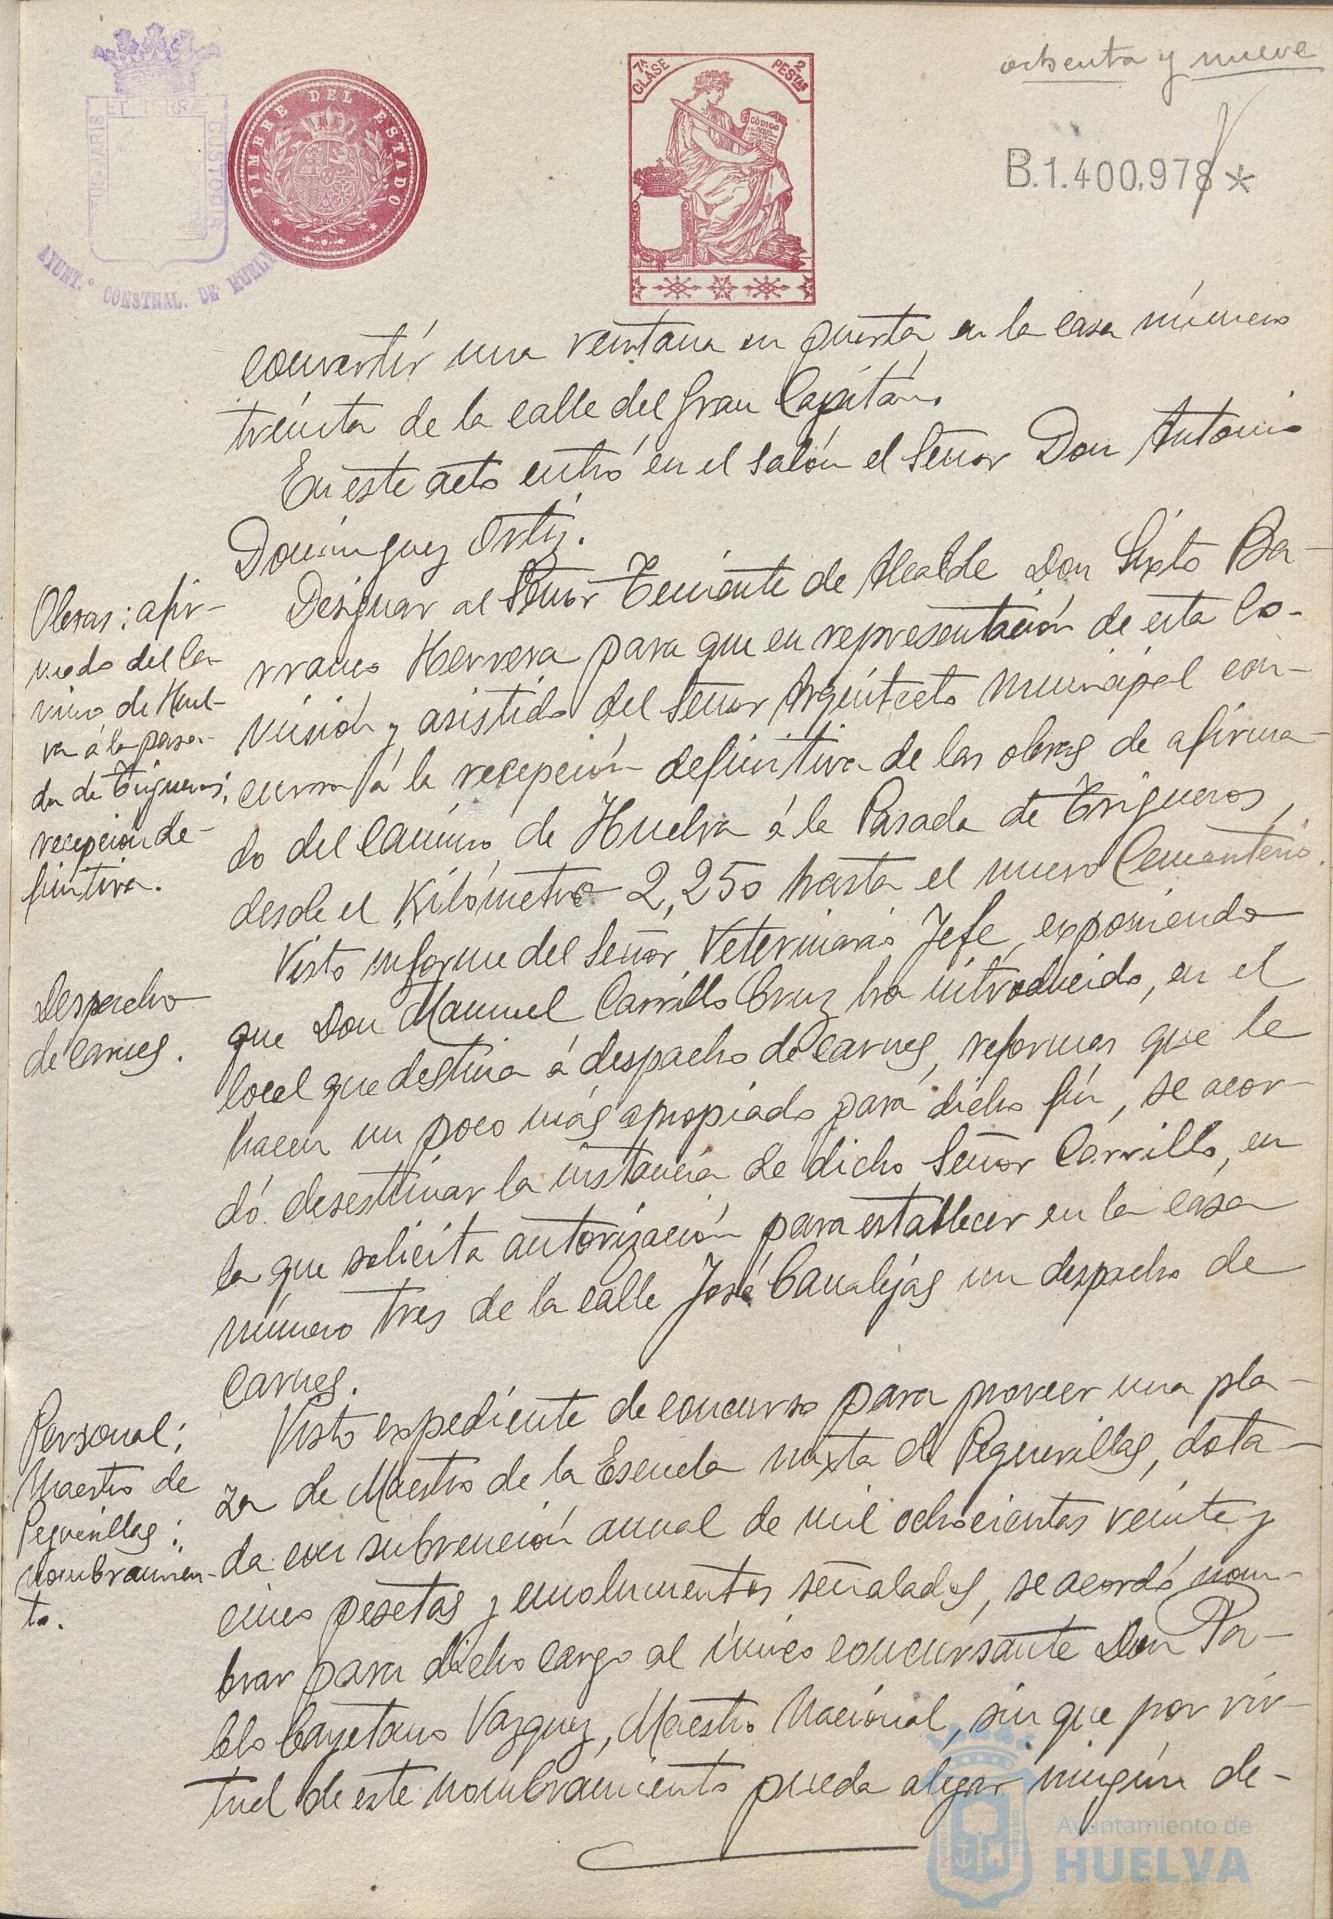 ochenta y nueve
PORTUS MARIS ET TERRAE CUSTODIA
AYUNT.º CONSTNAL. DE HUELVA
TIMBRE DEL ESTADO
7ª CLASE
2 PESTAS
CÓDIGO
B.1.400.978 *
convertír una ventana en puerta en la casa número
tréinta de la calle del Gran Capitán.
En este acto entró en el salón el Señor Don Antonio
Domínguez Ortíz.
Obras: afir-
mado del ca-
mino de Huel-
va á la pasa-
da de Trigueros;
recepción de-
finitiva.
Designar al Señor Teniente de Alcalde Don Sixto Ba-
rranco Herrera para que en representación de esta Co-
misión y asistido del Señor Arquitecto Municipal con-
curra á la recepción definitiva de las obras de afirma-
do del camino de Huelva á la Pasada de Trigueros,
desde el Kilómetro 2,250 hasta el nuevo Cementerio.
Despacho
de carnes.
Visto informe del Señor Veterinario Jefe, exponiendo
que Don Manuel Carrillo Cruz ha introducido, en el
local que destina á despacho de carnes, reformas que le
hacen un poco más apropiado para dicho fín, se acor-
dó desestimar la instancia de dicho Señor Carrillo, en
la que solicita autorización para establecer en la casa
número tres de la calle José Canalejas un despacho de
carnes.
Personal;
Maestro de
Peguerillas;
nombramien-
to.
Visto expediente de concurso para proveer una pla-
za de Maestro de la Escuela mixta de Peguerillas, dota-
da con subvención anual de mil ochocientas veinte y
cinco pesetas y emolumentos señalados, se acordó nom-
brar para dicho cargo al único concursante Don Pa-
blo Cayetano Vazquez, Maestro Nacional, sin que por vir-
tud de este nombramiento pueda alegar ningún de-
Ayuntamiento de
HUELVA